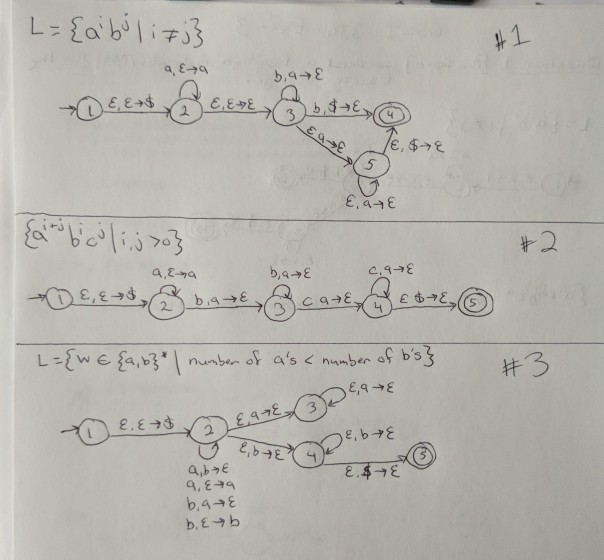 L = {aⁱbʲ | i ≠ j}
#1
a, ε→a
b, a→ε
1
ε, ε→$
2
ε, ε→ε
3
b, $→ε
4
ε, a→ε
5
ε, $→ε
ε, a→ε
{aⁱ⁺ʲbⁱcʲ | i, j > 0}
#2
a, ε→a
b, a→ε
c, a→ε
1
ε, ε→$
2
b, a→ε
3
c a→ε
4
ε $→ε
5
L = {w ∈ {a, b}* | number of a's < number of b's}
#3
1
ε, ε→$
2
ε, a→ε
3
ε, a→ε
ε, b→ε
4
ε, b→ε
ε, $→ε
3
a, b→ε
a, ε→a
b, a→ε
b, ε→b